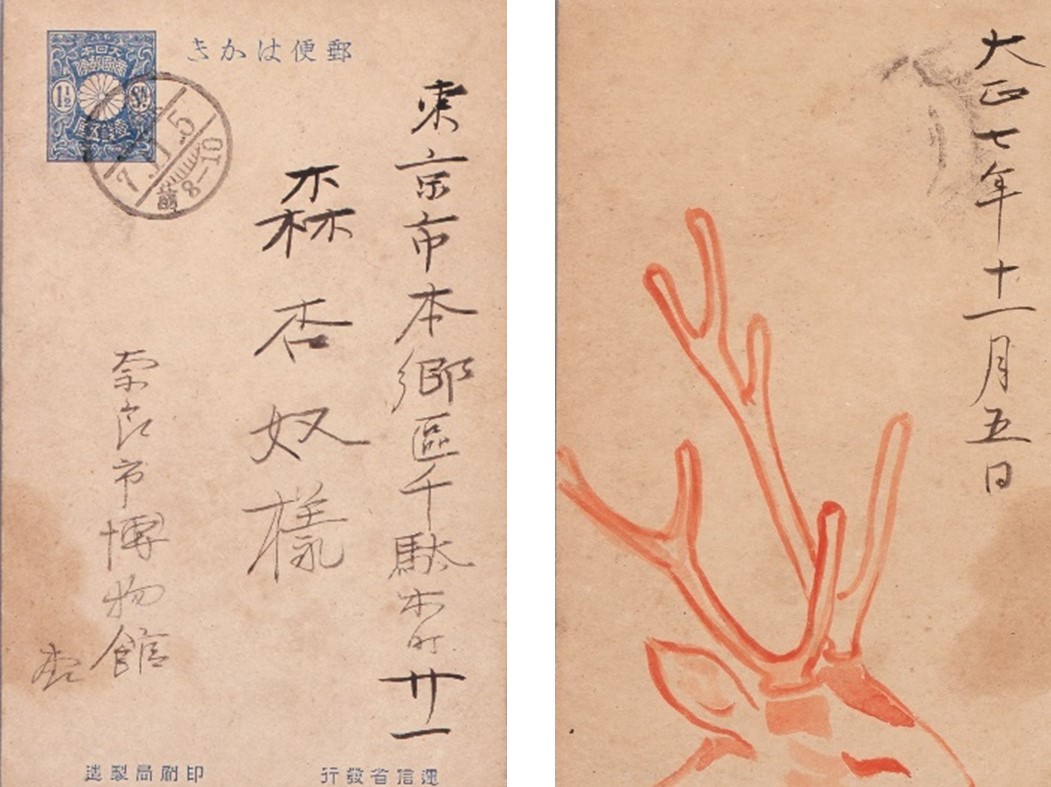 郵便はかき
1½ Sn
壹錢五厘
7.11.5
前8-10
東京市本郷區千駄木町廿一
森杏奴樣
奈良市博物館
遞信省發行
印刷局製造
大正七年十一月五日